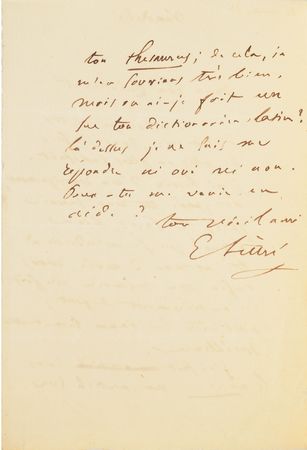 ton thesaurus; de cela, je
m'en souviens très bien,
mais en ai-je fait un
sur ton dictionnaire latin?
là-dessus je ne sais me
répondre ni oui ni non.
Peux-tu me venir en
aide?
ton vieil ami
E Littré